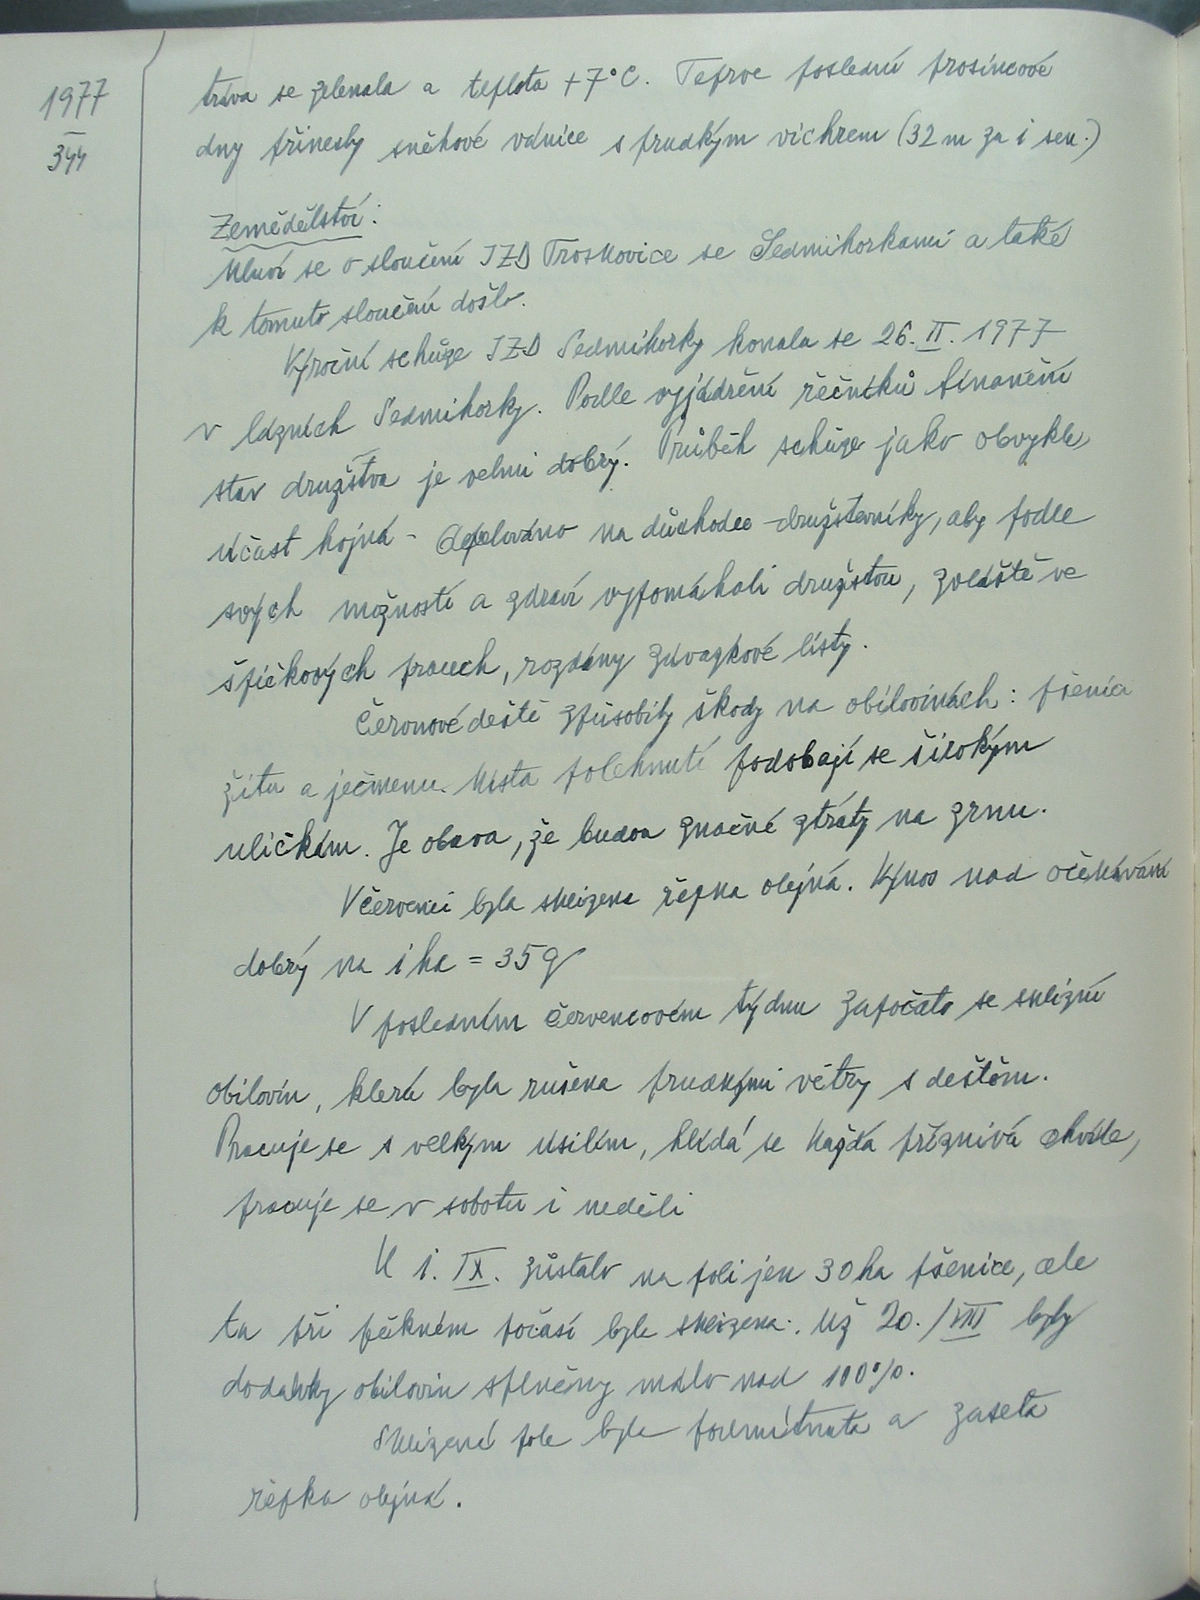 1977
344
tráva se zelenala a teplota +7°C. Teprve poslední prosincové
dny přinesly sněhové vánice s prudkým vichrem (32 m za 1 sek.)
Zemědělství:
Mluví se o sloučení JZD Troskovice se Sedmihorkami a také
k tomuto sloučení došlo.
Výroční schůze JZD Sedmihorky konala se 26. II. 1977
v lázních Sedmihorky. Podle vyjádření řečníků finanční
stav družstva je velmi dobrý. Průběh schůze jako obvykle,
účast hojná - apelováno na důchodce-družstevníky, aby podle
svých možností a zdraví vypomáhali družstvu, zvláště ve
špičkových pracech, rozdány závazkové listy.
Červnové deště způsobily škody na obilovinách: pšenici
žitu a ječmenu. Místa polehnutí podobají se širokým
uličkám. Je obava, že budou značné ztráty na zrnu.
V červenci byla sklizena řepka olejná. Výnos nad očekávání
dobrý na 1 ha = 35 q
V posledním červencovém týdnu započato se sklizní
obilovin, která byla rušena prudkými větry s deštěm.
Pracuje se s velkým úsilím, hlídá se každá příznivá chvíle,
pracuje se v sobotu i neděli
K 1. IX. zůstalo na poli jen 30 ha pšenice, ale
ta při pěkném počasí byla sklizena. Už 20./VIII byly
dodávky obilovin splněny málo nad 100%.
Sklizená pole byla podmítnuta a zaseta
řepka olejná.